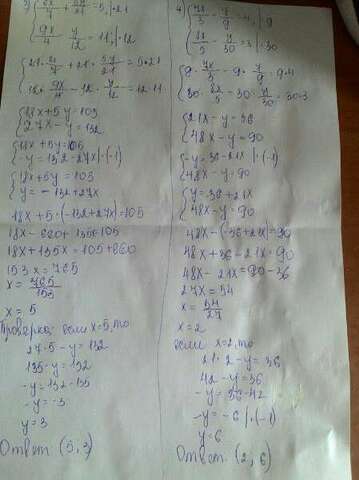 3) { 6x/7 + 5y/21 = 5, | · 21
9x/4 - y/12 = 11, | · 12
{ 21 · 6x/7 + 21 · 5y/21 = 5 · 21
12 · 9x/4 - 12 · y/12 = 12 · 11
{ 18x + 5y = 105
27x - y = 132
{ 18x + 5y = 105
-y = 132 - 27x | · (-1)
{ 18x + 5y = 105
y = -132 + 27x
18x + 5 · (-132 + 27x) = 105
18x - 660 + 135x = 105
18x + 135x = 105 + 660
153x = 765
x = 765/153
x = 5
Проверка: если x = 5, то
27 · 5 - y = 132
135 - y = 132
-y = 132 - 135
-y = -3
y = 3
Ответ: (5, 3)
4) { 7x/3 - y/9 = 4, | · 9
8x/5 - y/30 = 3 | · 30
{ 9 · 7x/3 - 9 · y/9 = 9 · 4
30 · 8x/5 - 30 · y/30 = 30 · 3
{ 21x - y = 36
48x - y = 90
{ -y = 36 - 21x | · (-1)
48x - y = 90
{ y = -36 + 21x
48x - y = 90
48x - (-36 + 21x) = 90
48x + 36 - 21x = 90
48x - 21x = 90 - 36
27x = 54
x = 54/27
x = 2
если x = 2, то
21 · 2 - y = 36
42 - y = 36
-y = 36 - 42
-y = -6 | · (-1)
y = 6
Ответ: (2, 6)